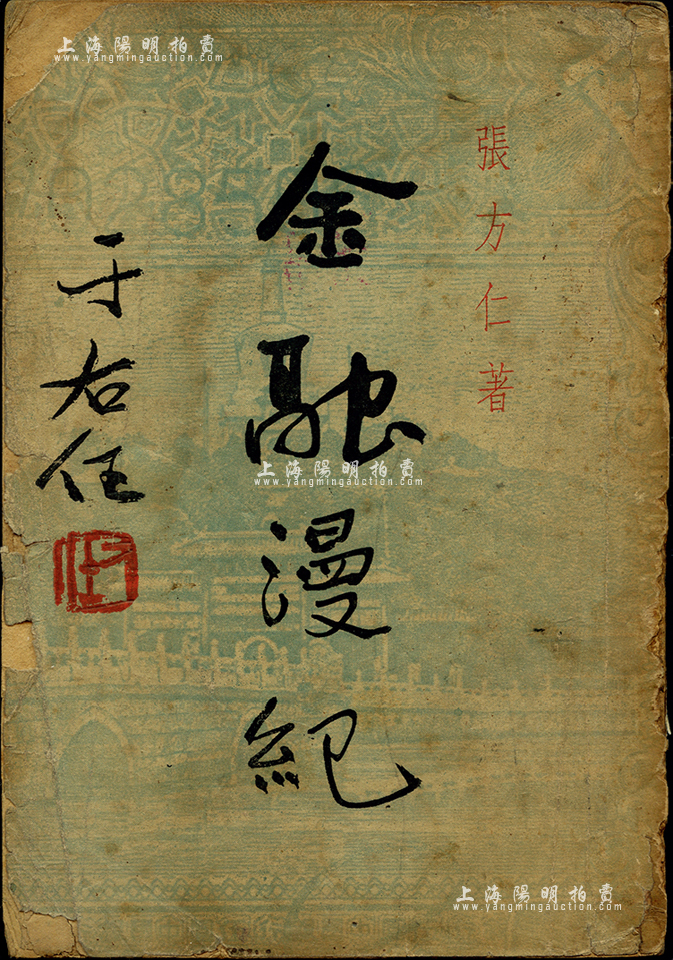 上海陽明拍賣
www.yangmingauction.com
張方仁著
金融漫紀
于右任
上海陽明拍賣
www.yangmingauction.com
上海陽明拍賣
www.yangmingauction.com